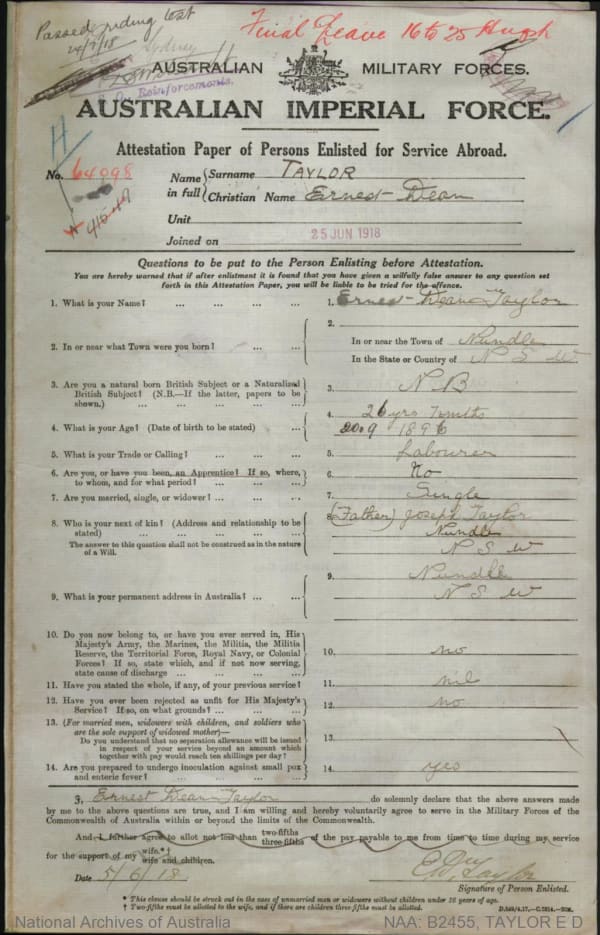 Passed riding test
24/7/18
Sydney
Final Leave 16 to 25 Augst
Reinforcements.
AUSTRALIAN MILITARY FORCES.
AUSTRALIAN IMPERIAL FORCE.
Attestation Paper of Persons Enlisted for Service Abroad.
H
No. 64098
Name in full { Surname TAYLOR
Christian Name Ernest Dean
Unit
Joined on 25 JUN 1918
Questions to be put to the Person Enlisting before Attestation.
You are hereby warned that if after enlistment it is found that you have given a wilfully false answer to any question set
forth in this Attestation Paper, you will be liable to be tried for the offence.
1. What is your Name? ... ... ... ... 1. Ernest Dean Taylor
2. In or near what Town were you born? ... ... 2. In or near the Town of Nundle
In the State or Country of N S W
3. Are you a natural born British Subject or a Naturalized
British Subject? (N.B.—If the latter, papers to be
shown.) ... ... ... ... ... 3. N B
4. What is your Age? (Date of birth to be stated) ... 4. 26 yrs
20.9
5. What is your Trade or Calling? ... ... ... 5. Labourer
6. Are you, or have you been, an Apprentice? If so, where,
to whom, and for what period? ... ... ... 6. No
7. Are you married, single, or widower? ... ... ... 7. Single
8. Who is your next of kin? (Address and relationship to be
stated) ... ... ... ... ... 8. (Father) Joseph Taylor
The answer to this question shall not be construed as in the nature
of a Will.
Nundle
N S W
9. What is your permanent address in Australia? ... ... 9. Nundle
N S W
10. Do you now belong to, or have you ever served in, His
Majesty's Army, the Marines, the Militia, the Militia
Reserve, the Territorial Force, Royal Navy, or Colonial
Forces? If so, state which, and if not now serving,
state cause of discharge ... ... ... ... 10. no
11. Have you stated the whole, if any, of your previous service? 11. nil
12. Have you ever been rejected as unfit for His Majesty's
Service? If so, on what grounds? ... ... ... 12. no
13. (For married men, widowers with children, and soldiers who
are the sole support of widowed mother)—
Do you understand that no separation allowance will be issued
in respect of your service beyond an amount which
together with pay would reach ten shillings per day? 13.
14. Are you prepared to undergo inoculation against small pox
and enteric fever? ... ... ... ... 14. yes
I, Ernest Dean Taylor do solemnly declare that the above answers made
by me to the above questions are true, and I am willing and hereby voluntarily agree to serve in the Military Forces of the
Commonwealth of Australia within or beyond the limits of the Commonwealth.
And I further agree to allot not less than two-fifths three-fifths of the pay payable to me from time to time during my service
for the support of my wife.*† wife and children.
Date 5/6/18
E D Taylor
Signature of Person Enlisted.
* This clause should be struck out in the case of unmarried men or widowers without children under 16 years of age.
† Two-fifths must be allotted to the wife, and if there are children three-fifths must be allotted.
National Archives of Australia
NAA: B2455, TAYLOR E D